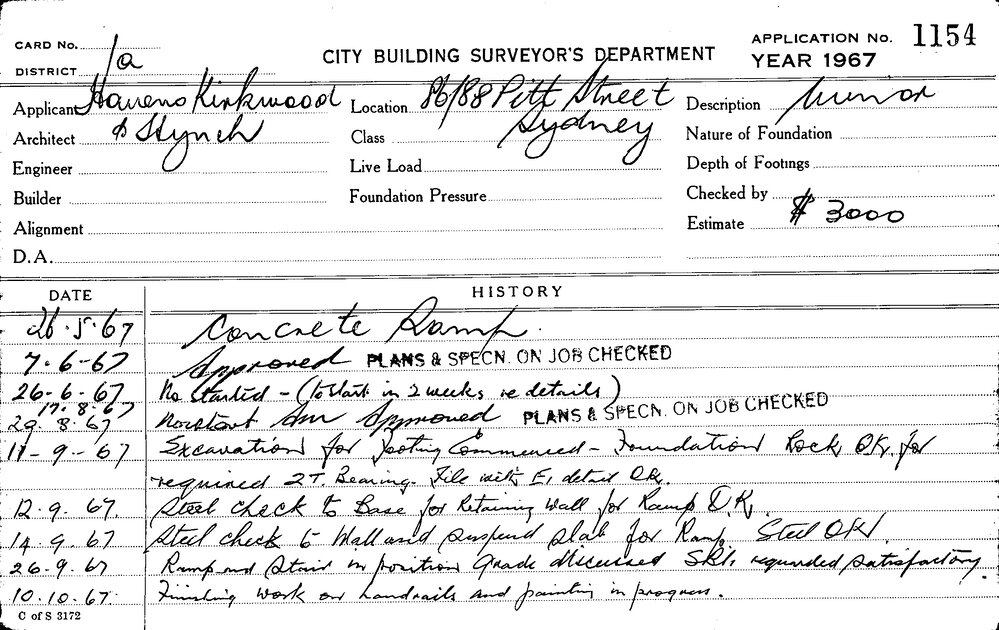 CARD No. 1a
CITY BUILDING SURVEYOR'S DEPARTMENT
APPLICATION No. 1154
DISTRICT
YEAR 1967
Applicant Havens Kirkwood Location 86/88 Pitt Street Description Minor
Architect & Hynch Class Sydney Nature of Foundation
Engineer Live Load Depth of Footings
Builder Foundation Pressure Checked by
Alignment Estimate $ 3000
D.A.
DATE HISTORY
26.5.67 Concrete Ramp.
7.6-67 Approved PLANS & SPECN. ON JOB CHECKED
26-6-67 No started - (to start in 2 weeks re details)
17.8.67
29.8.67 No start Am Approved PLANS & SPECN. ON JOB CHECKED
11-9-67 Excavation for Footing Commenced - Foundation Rock OK. for
required 2T. Bearing. File with E, detail OK.
12.9.67. Steel check to Base for Retaining Wall for Ramp O.K.
14.9.67 Steel check to Wall and suspend slab for Ramp. Steel OK.
26-9.67 Ramp and Stair in position Grade discussed regarded satisfactory.
10.10.67. Finishing work on handrails and painting in progress.
C of S 3172